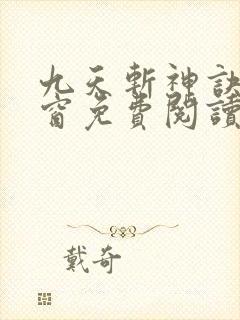 九天斬神訣
窗免費閱讀
戴奇